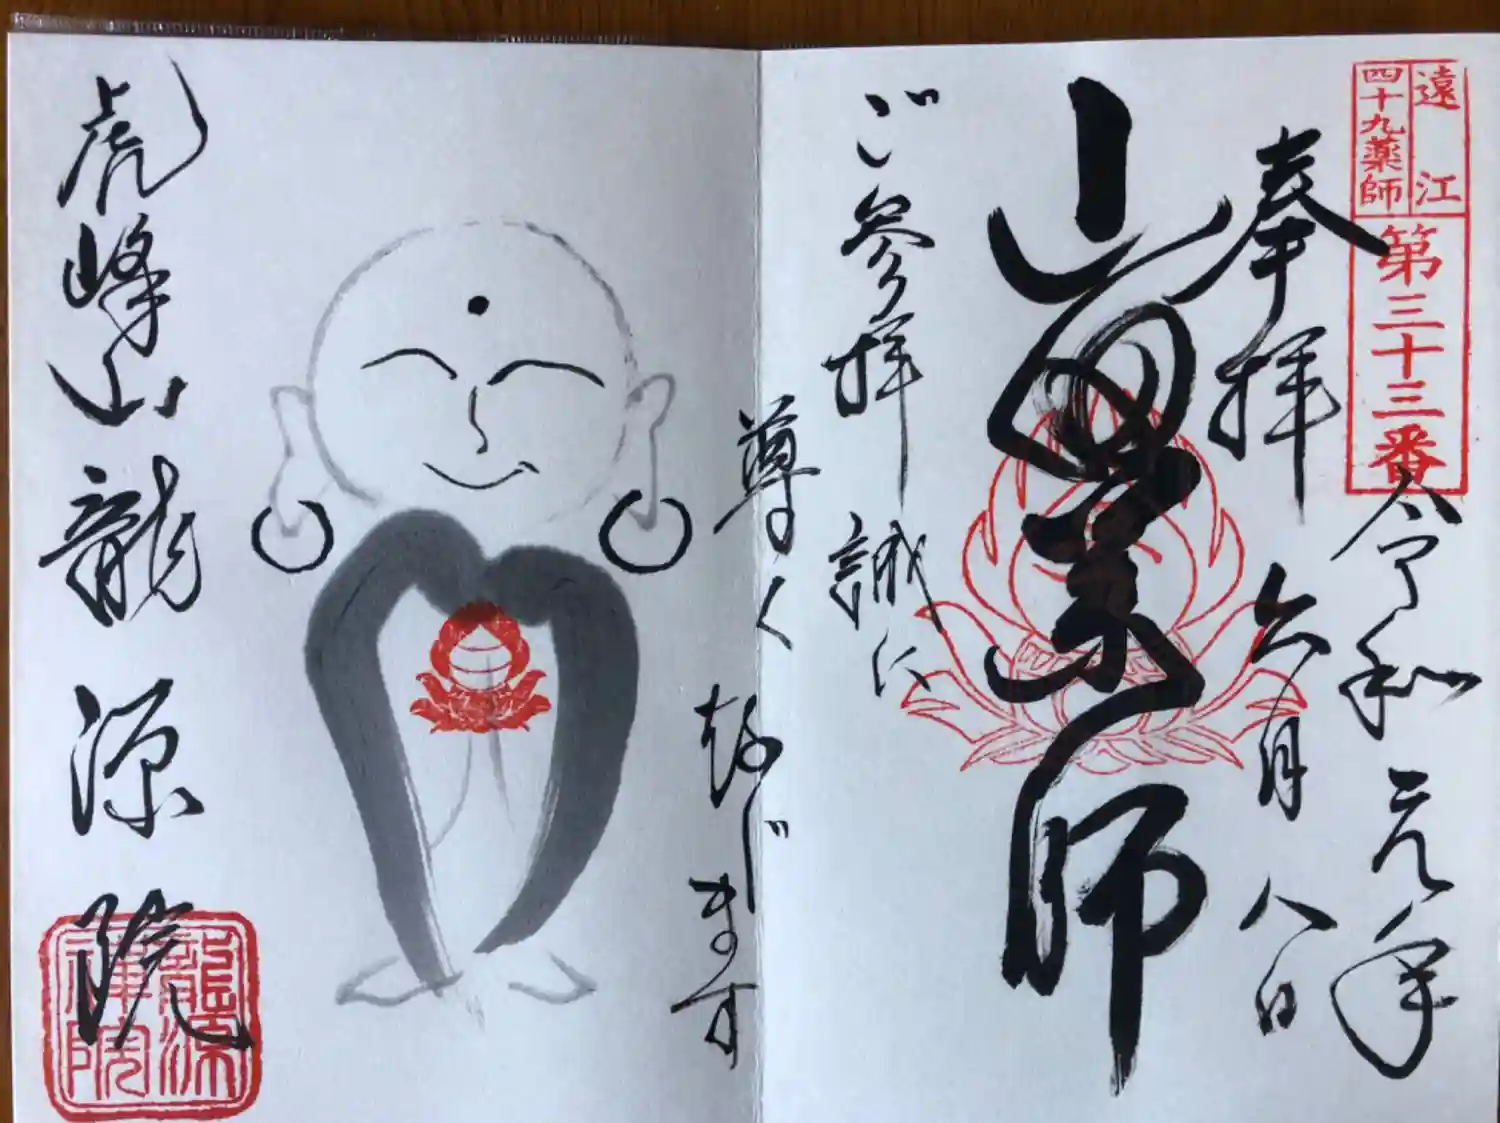 遠江
四十九薬師
第三十三番
令和元年
六月八日
奉拝
山薬師
ご参拝誠に
尊く存じます
虎峰山龍源院
龍源
禅院